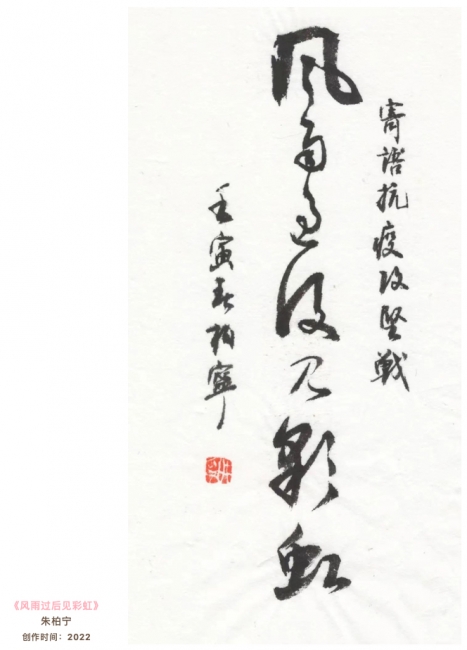 寄语抗疫攻坚战
风雨过后见彩虹
壬寅春柏宁
《风雨过后见彩虹》
朱柏宁
创作时间：2022